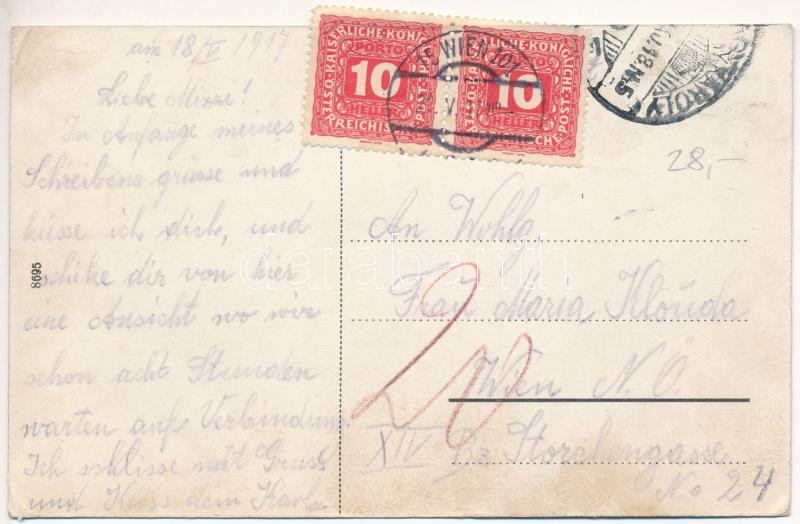 am 18/V 1917
Liebe Mizze!
In Anfange meines
Schreibens grüsse und
küsse ich dich, und
schike dir von hier
eine Ansicht wo wir
schon acht Stunden
warten auf Verbindung.
Ich schlisse mit Gruss
und Kuss dein Karl
8695
KAISERLICHE KÖNIGLICHE
PORTO
10
HELLER
KAISERLICHE KÖNIGLICHE
10
WIEN 101
V
KÁROLY
28,-
An Wohlg.
Frau Maria Klouda
Wien N. Ö.
XIV Bz Storchengasse
No 24
20
darabanth